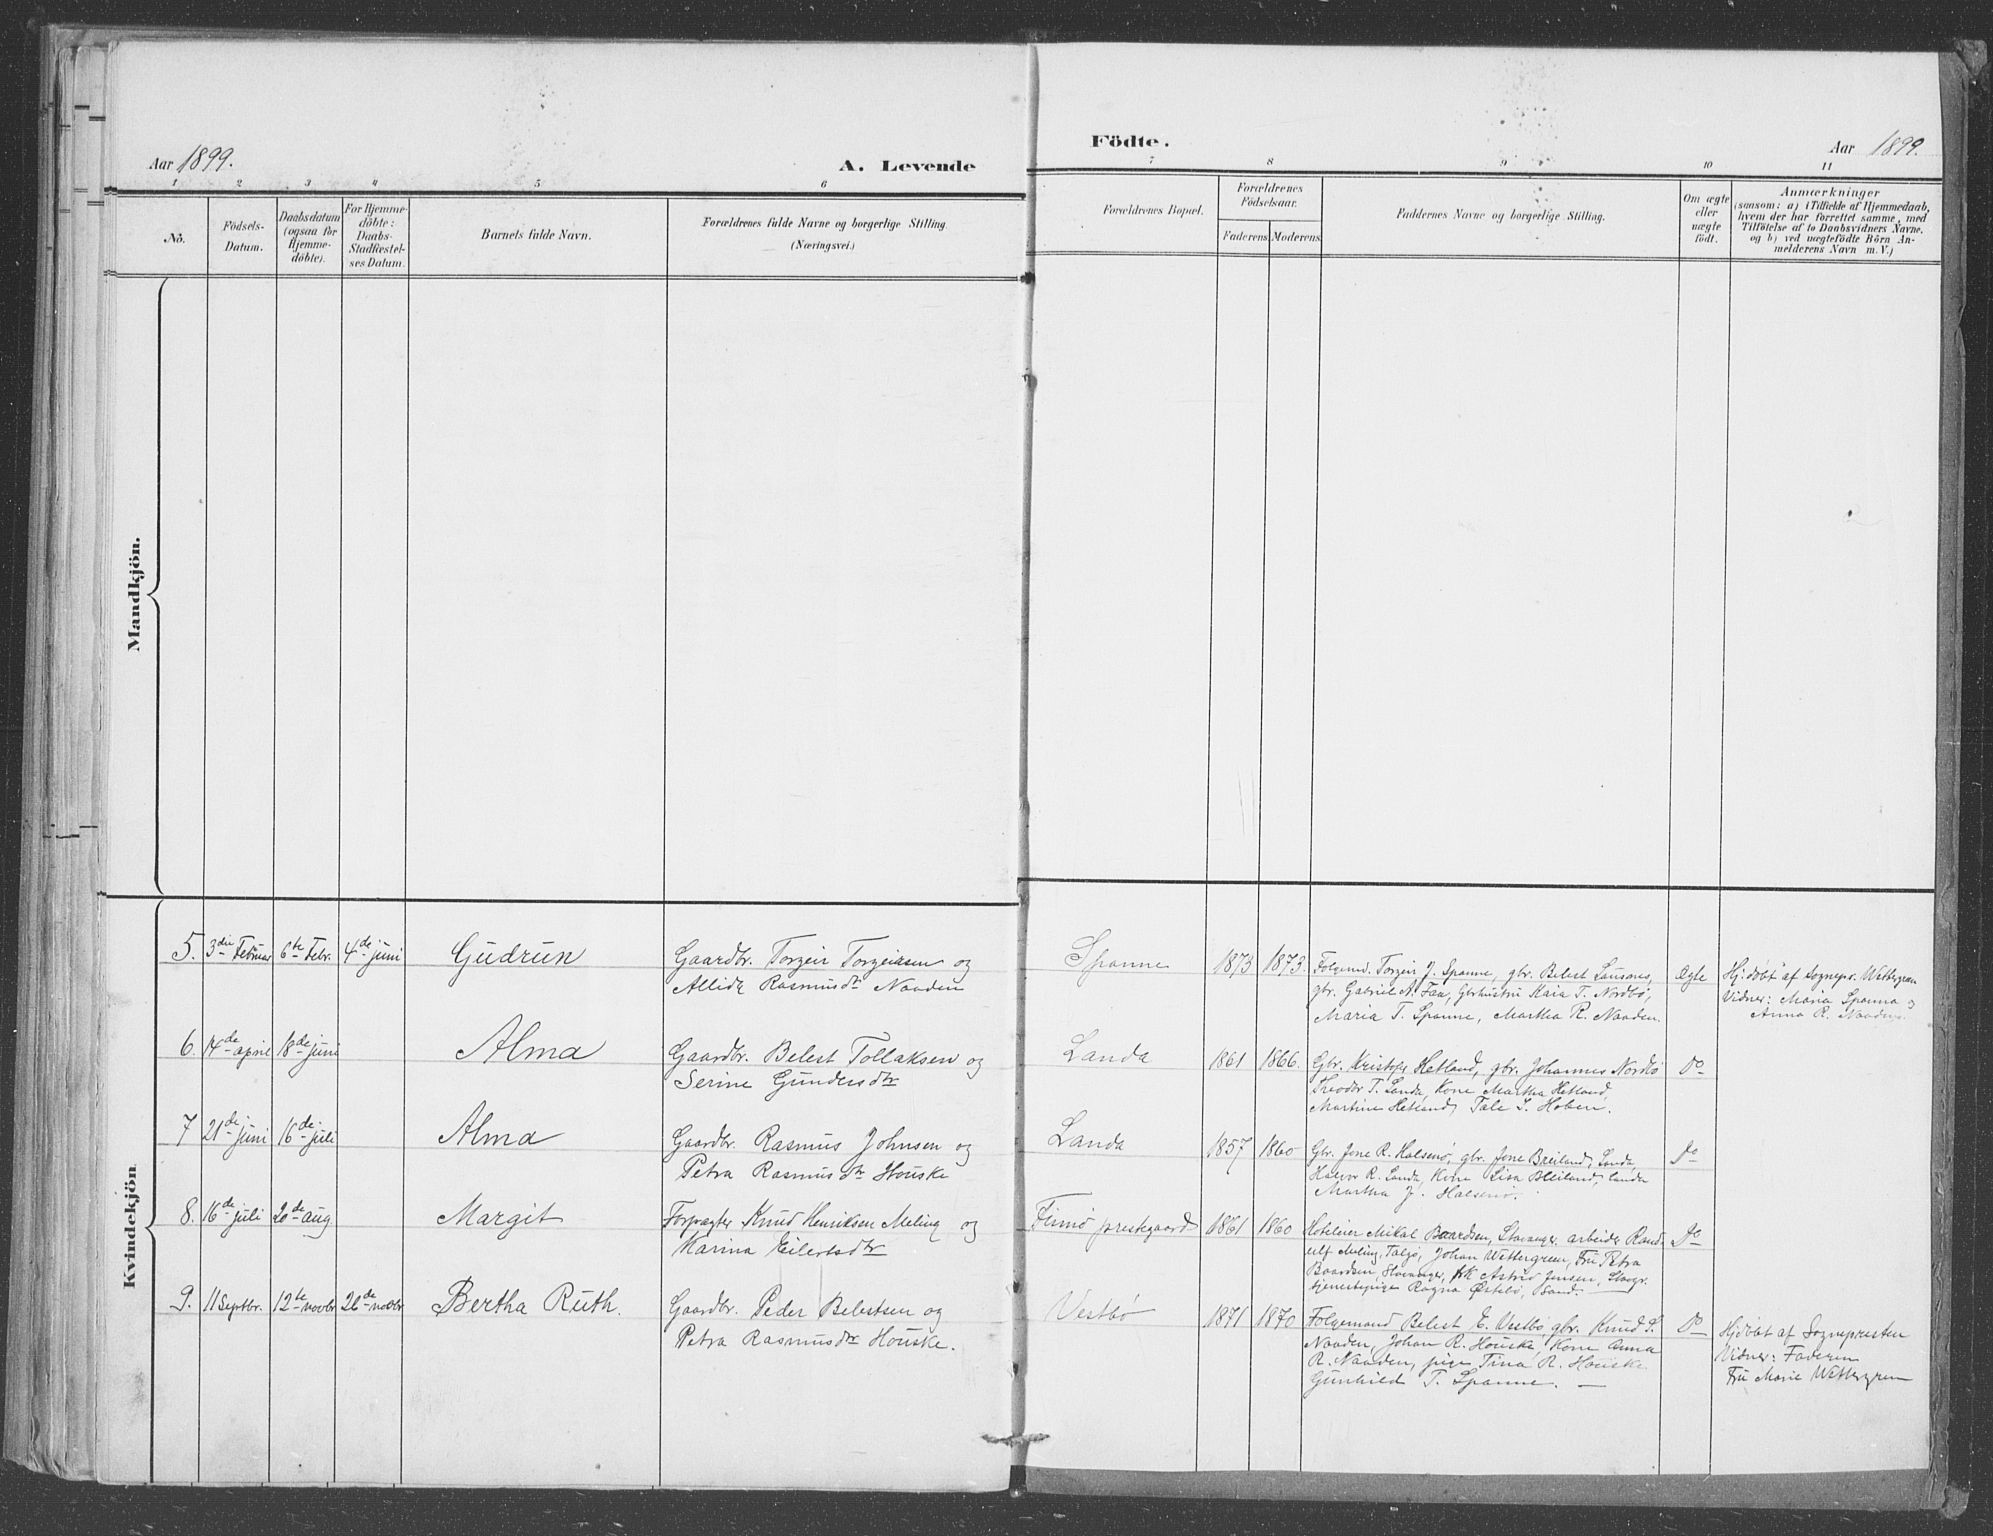 Aar 1899.
A. Levende
Födte.
Aar 1899.
1 2 3 4 5 6 7 8 9 10 11
No.
Födsels-
Datum.
Daabsdatum
(ogsaa for
Hjemme-
döbte).
For Hjemme-
döbte:
Daabs-
Stadfæstel-
ses Datum.
Barnets fulde Navn.
Forældrenes fulde Navne og borgerlige Stilling
(Næringsvei.)
Forældrenes Bopæl.
Forældrenes
Födselsaar.
Faderens Moderens
Faddernes Navne og borgerlige Stilling.
Om ægte
eller
uægte
födt.
Anmærkninger
(saasom: a) i Tilfælde af Hjemmedaab,
hvem der har forrettet samme, med
Tilföielse af to Daabsvidners Navne.
og b) ved uægtefödte Börn An-
melderens Navn m. V.)
Mandkjön.
Kvindekjön.
5. 3die Februar 6te Febr. 4de juni Gudrun
Gaardbr. Torgeir Torgeirsen og
Allida Rasmusdtr Naaden
Spanne 1873 1873.
Folgemd. Torgeir J. Spanne, gbr. Belest
gbr. Gabriel A. Fax, Gbrhustru Kaia T. Nordbø,
Maria T. Spanne, Martha R. Naaden.
Ægte
Hj. døbt af Sognepr. Wettergren
Vidner: Maria Spanne og
Anna R. Naaden.
6. 14de april 18de juni Alma
Gaardbr. Belest Tollaksen og
Serine Gundersdtr
Landa 1861 1866.
Gbr. Kristofer Hetland, gbr. Johannes Nordbø
Theodor T. Landa, Kone Martha Hetland,
Martine Hetland, Tale S. Hoben.
Do
7 21de juni 16de juli Alma
Gaardbr. Rasmus Johnsen og
Petra Rasmusdtr Houske
Landa 1857 1860
Gbr. Jone R. Halsenø, gbr. Jone Breiland, Landa,
Halvor R. Landa, Kone Lisa Breiland, Landa
Martha J. Halsenø.
Do
8. 16de juli 20de aug Margit
Forpagter Knud Henriksen Meling og
Karina Eilertsdtr
Finnø prestegaard 1861 1860
Hoteleier Mikal Baardsen, Stavanger, arbeider Rand-
ulf Meling, Talgø, Johan Wettergreen, Fru Petra
Baardsen, Stavanger, frk Astrid Jensen, Stavgr.
tjenestepige Ragna Østebø, Sand.
Do
9. 11 Septbr. 12te novbr 26de novbr Bertha Ruth.
Gaardbr. Peder Belestsen og
Petra Rasmusdtr Houske.
Vestbø 1871 1870
Folgemand Belest E. Vestbø, gbr. Knud S.
Naaden, Johan R. Houske, Kone Anna
R. Naaden, pige Tina R. Houske
Gunhild T. Spanne.
Do
Hj. døbt af Sognepresten
Vidner: Faderen
Fru Marie Wettergren